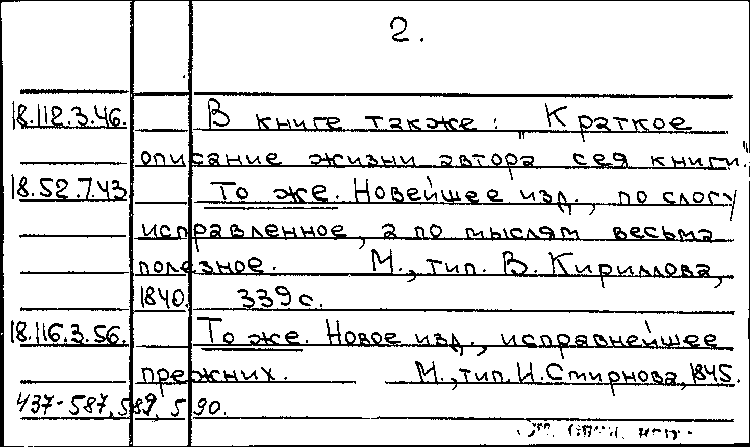 2.
18.112.3.46. В книге также: „Краткое
описание жизни автора сея книги."
18.52.7.43 То же. Новейшее изд., по слогу
исправленное, а по мыслям весьма
полезное. М., тип. В. Кириллова,
1840. 339 с.
18.116.3.56. То же. Новое изд., исправнейшее
прежних. М., тип. И. Смирнова, 1845.
437-587, 589, 590.